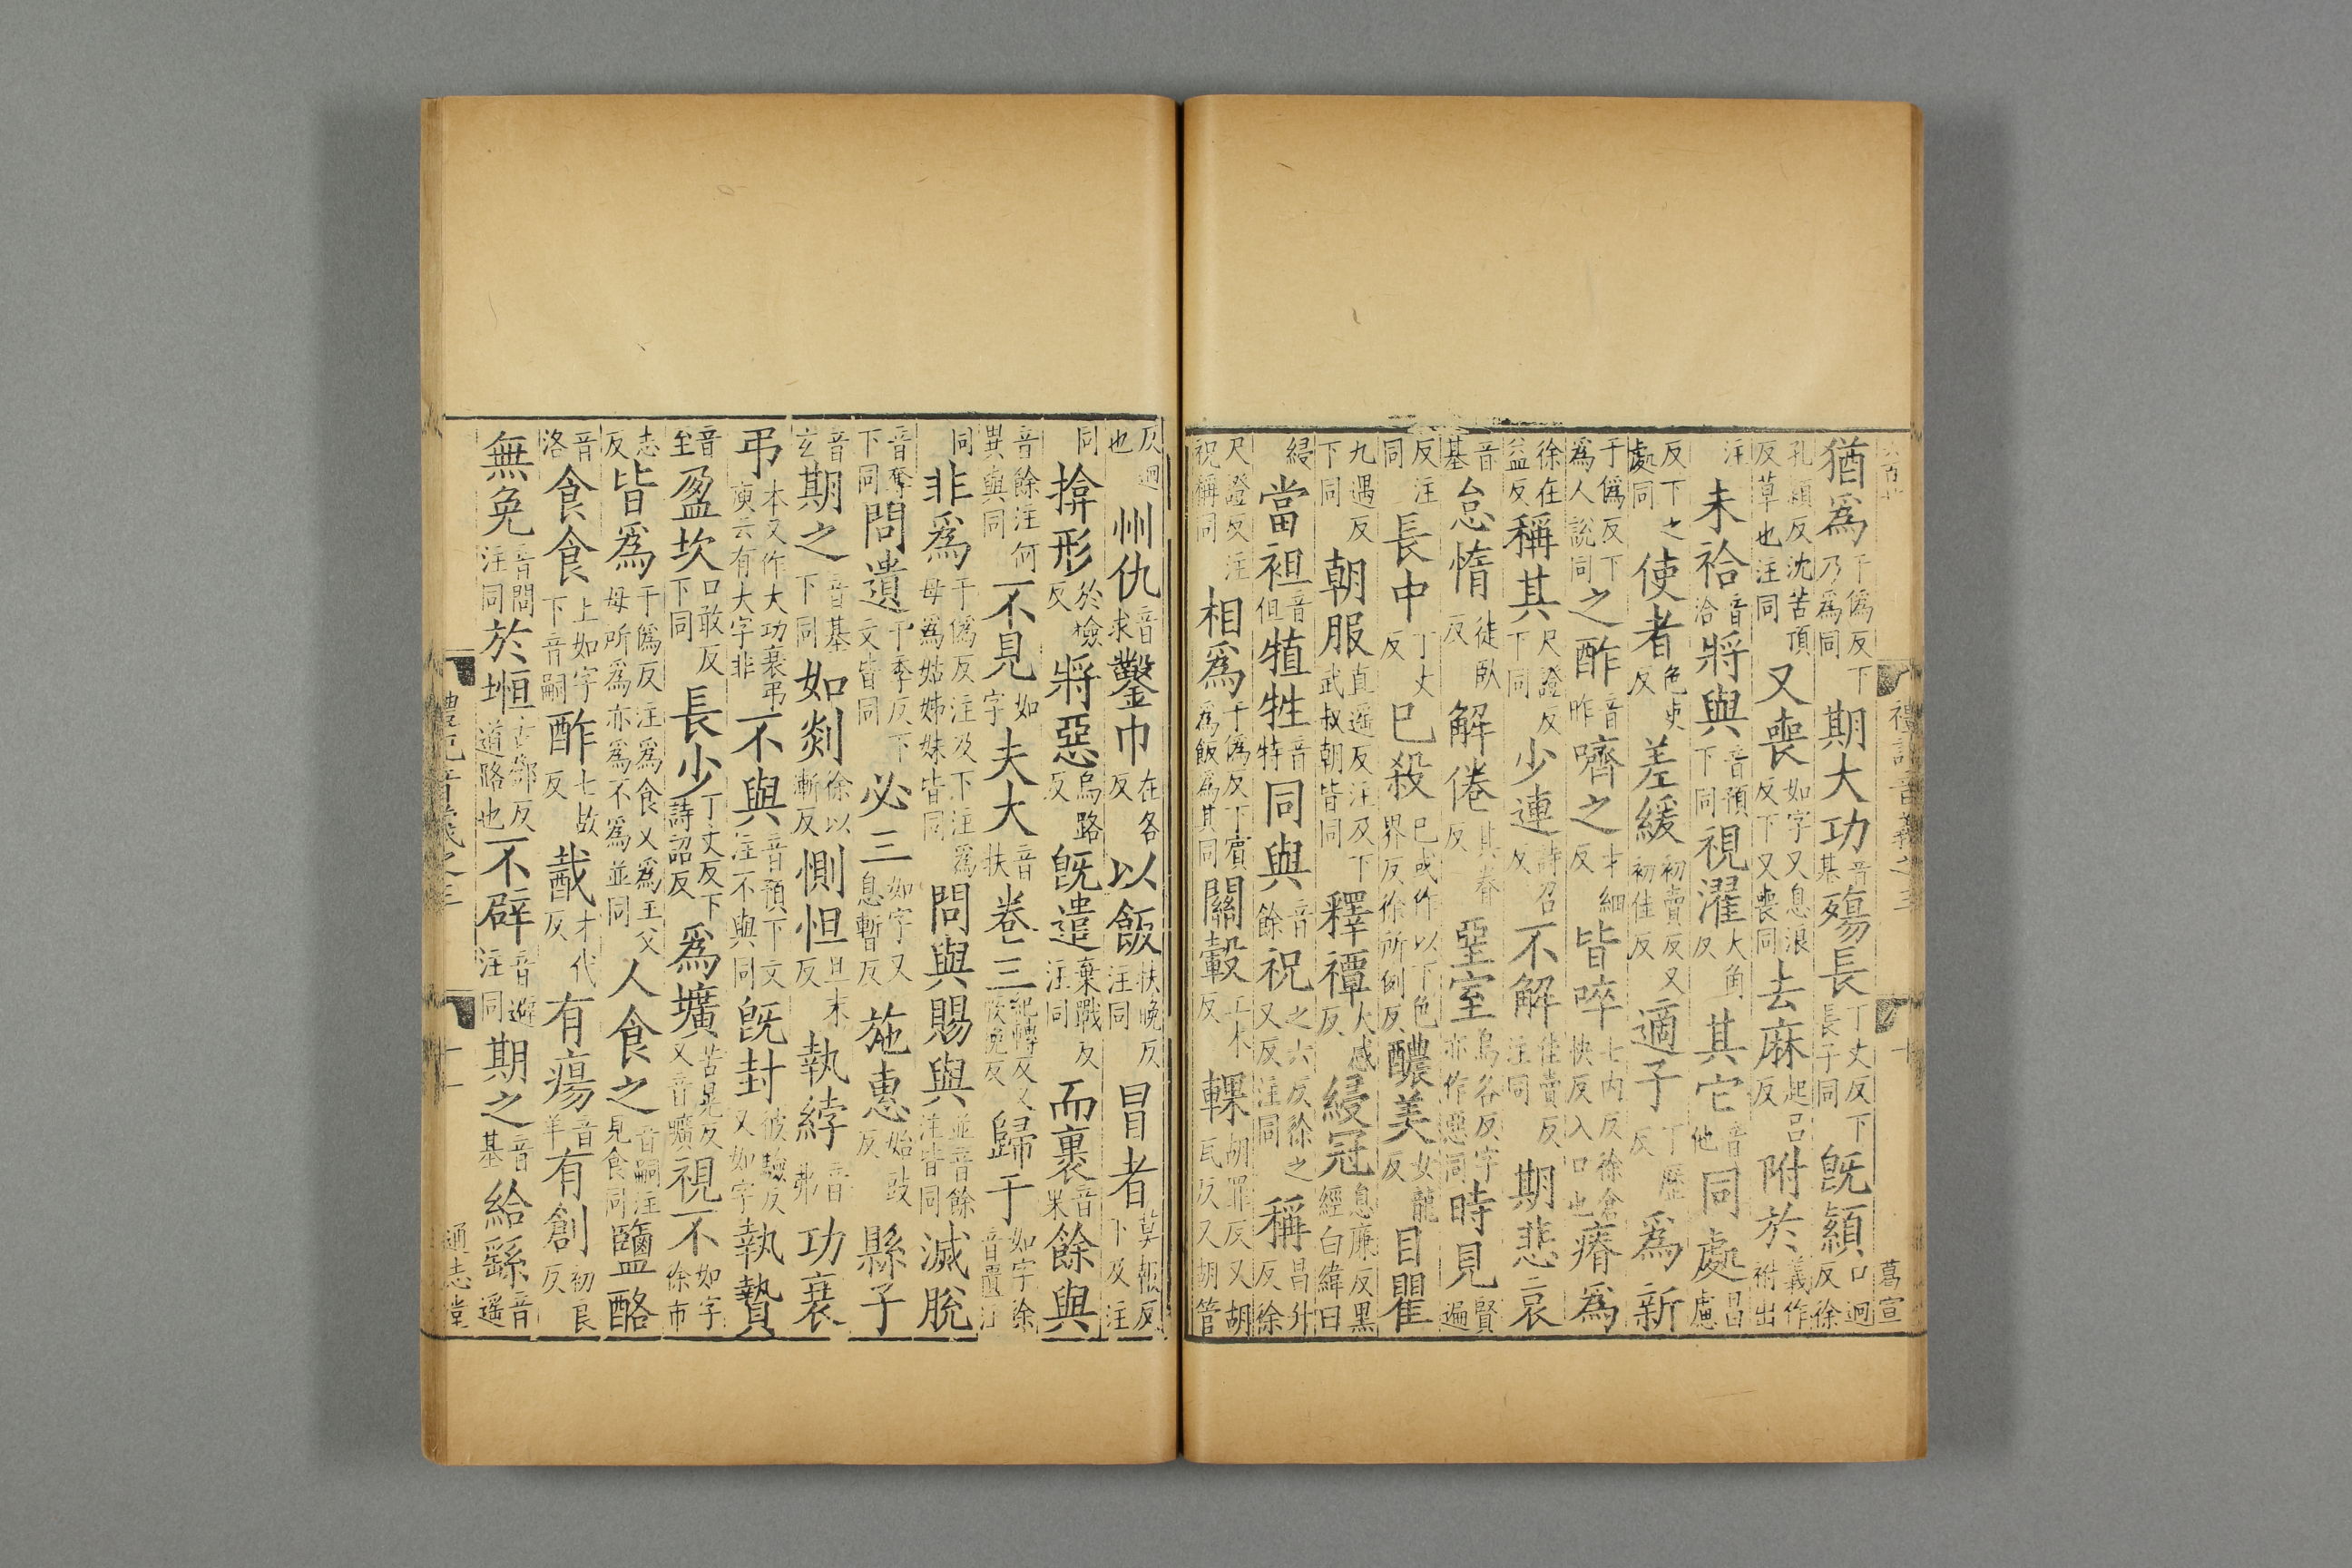 猶爲于僞反下乃爲同期大功音基殤長丁丈反下長子同旣潁口迥反徐
孔潁反沈苦頂反草也注同又喪如字又息浪反下又喪同去麻起呂反附於義作祔出
注未祫音洽將與音預下同視濯大角反其它音他同處昌慮
反下之處同使者色吏反差緩初賣反又初佳反適子丁歷反爲新
于僞反下爲人說同之酢音昨嚌之才細反皆啐七內反徐倉快反入口也瘠爲
徐在益反稱其尺證反下同少連詩召反不解佳賣反注同期悲哀
音基怠惰徒臥反解倦其眷反堊室烏各反字亦作惡同時見賢遍
反注同長中丁丈反已殺已或作以下色界反徐所例反醲美女龍反目瞿
九遇反下同朝服直遥反注及下武叔朝皆同釋禫大感反綅冠息廉反黑經白緯曰
綅當袒音但犆牲音特同與音餘祝之六反徐之又反注同稱昌升反徐
尺證反注祝稱同相爲于僞反下賓爲飯爲其同關轂工木反輠胡罪反又胡瓦反又胡管
禮記音義之三 十 葛宣
反迥也州仇音求鑿巾在各反以飯扶晚反注同冒者莫報反下及注
同揜形於檢反將惡烏路反旣遣棄戰反注同而裹音果餘與
音餘注何異與同不見如字夫大音扶卷三紀轉反又厥挽反歸于如字徐音匱注
同非爲于僞反注及下注爲母爲姑姊妹皆同問與賜與並音餘注皆同滅脫
音奪下同問遺于季反下文皆同必三如字又息暫反施惠始豉反縣子
音玄期之音基下同如剡徐以漸反惻怛旦末反執紼音弗功衰
弔本又作大功衰弔庾云有大字非不與音預下文注不與同旣封彼驗反又如字執贄
音至盈坎口敢反下同長少丁丈反下詩詔反爲壙苦晃反又音曠視不如字徐市
志反皆爲于僞反注爲食又爲王父母所爲亦爲不爲並同人食之音嗣注見食同鹽酪
音洛食食上如字下音嗣酢七故反酨才代反有瘍音羊有創初良反
無免音問注同於堩古鄧反道路也不辟音避注同期之音基給繇音遥
禮記音義之三 十一 通志堂